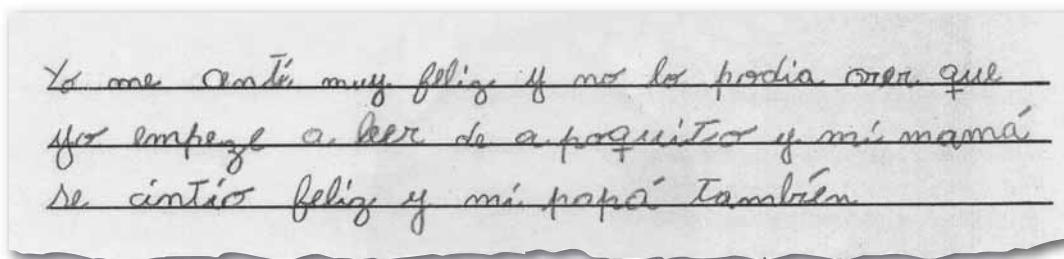 Yo me centí muy feliz y no lo podia crer que
yo empeze a leer de a poquito y mi mamá
se cintió feliz y mi papá también